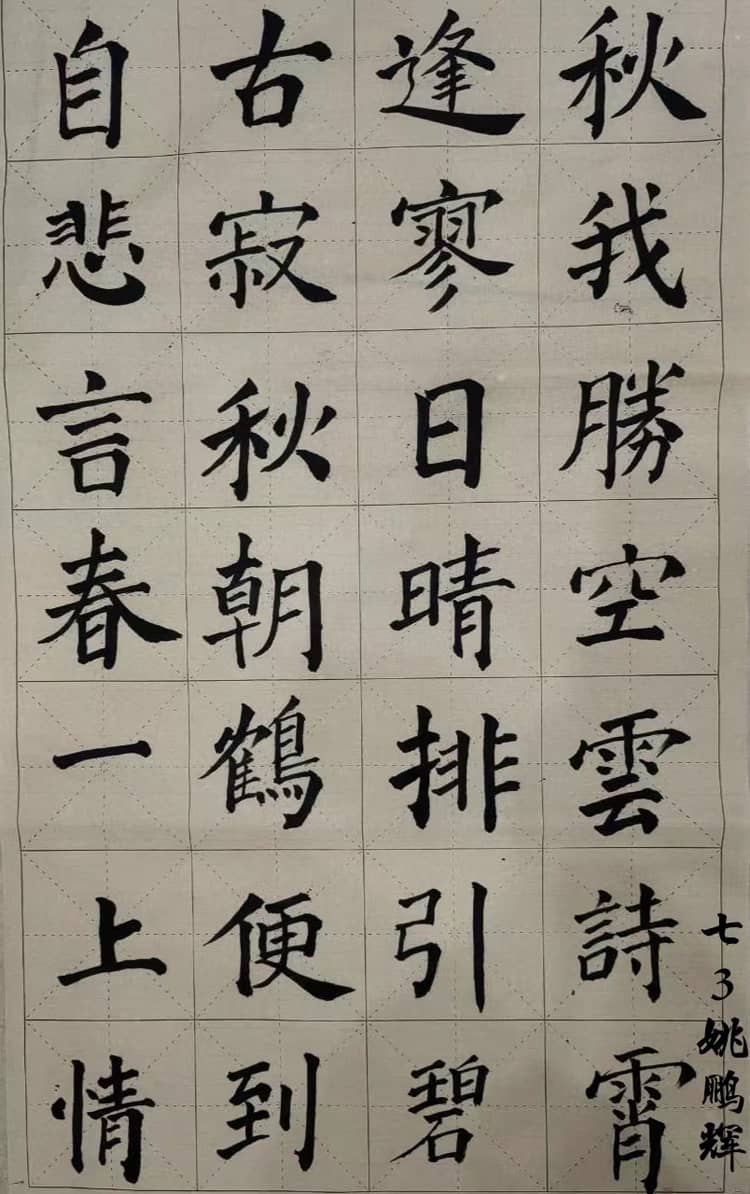 自古逢秋
悲寂寥我
言秋日勝
春朝晴空
一鶴排雲
上便引詩
情到碧霄
七3姚鹏辉